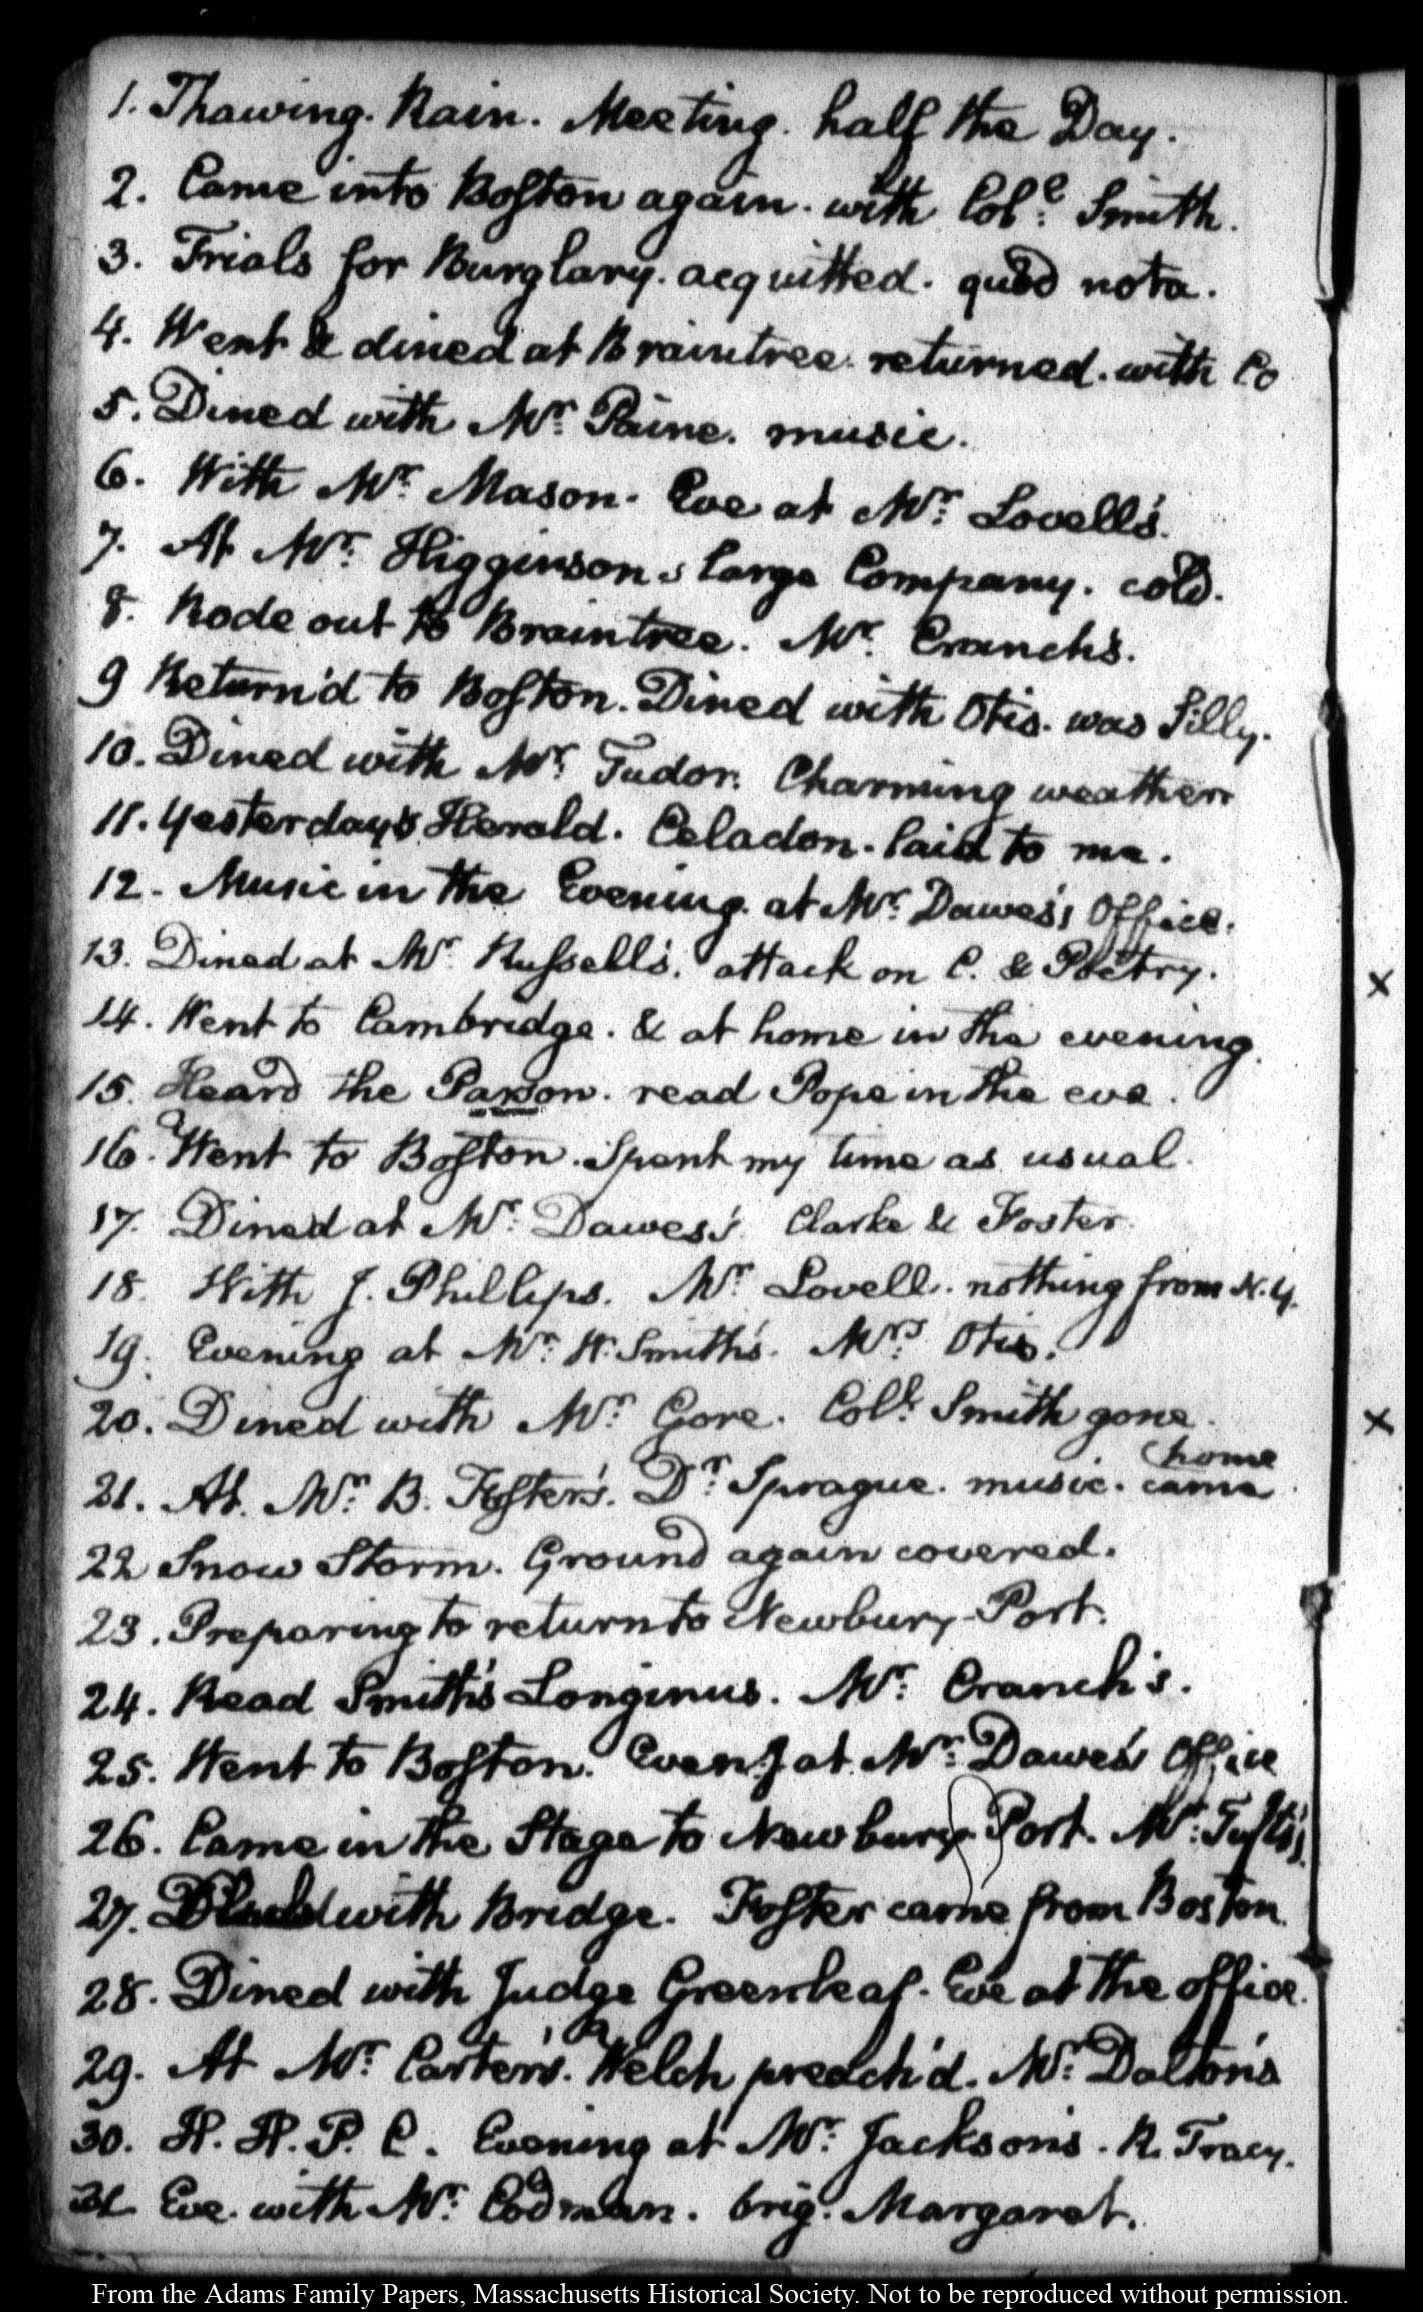 1. Thawing. Rain. Meeting. half the Day.
2. Came into Boston again. with Coll: Smith.
3. Trials for Burglary. acquitted. quod nota.
4. Went & dined at Braintree. returned. with Co
5. Dined with Mr: Paine. music.
6. With Mr: Mason. Eve at Mr: Lovell's.
7. At Mr: Higginson's large Company. cold.
8. Rode out to Braintree. Mr: Cranch's.
9 Return'd to Boston. Dined with Otis. was Silly.
10. Dined with Mr: Tudor. Charming weather
11. Yesterday's Herald. Celadon. laid to me.
12. Music in the Evening. at Mr: Dawes's Office.
13. Dined at Mr: Russell's. attack on C. & Poetry.
14. Went to Cambridge. & at home in the evening.
15. Heard the Parson. read Pope in the eve.
16. Went to Boston. Spent my time as usual.
17. Dined at Mr: Dawes's. Clarke & Foster.
18. With J. Phillips. Mr: Lovell. nothing from N.Y.
19. Evening at Mr: W. Smith's. Mrs: Otis.
20. Dined with Mr: Gore. Coll: Smith gone.
21. At. Mr: B. Foster's. Dr: Sprague. music. came home
22 Snow Storm. Ground again covered.
23. Preparing to return to Newbury-Port.
24. Read Smith's Longinus. Mr: Cranch's.
25. Went to Boston. Eveng at Mr: Dawes's Office
26. Came in the Stage to Newbury-Port. Mr: Tufts's.
27. with Bridge. Foster came from Boston.
28. Dined with Judge Greenleaf. Eve at the office.
29. At Mr: Carter's. Welch preach'd. Mr: Dalton's
30. H. H. P. C. Evening at Mr: Jackson's. R. Tracy.
31. Eve. with Mr: Codman. brig. Margaret.
From the Adams Family Papers, Massachusetts Historical Society. Not to be reproduced without permission.